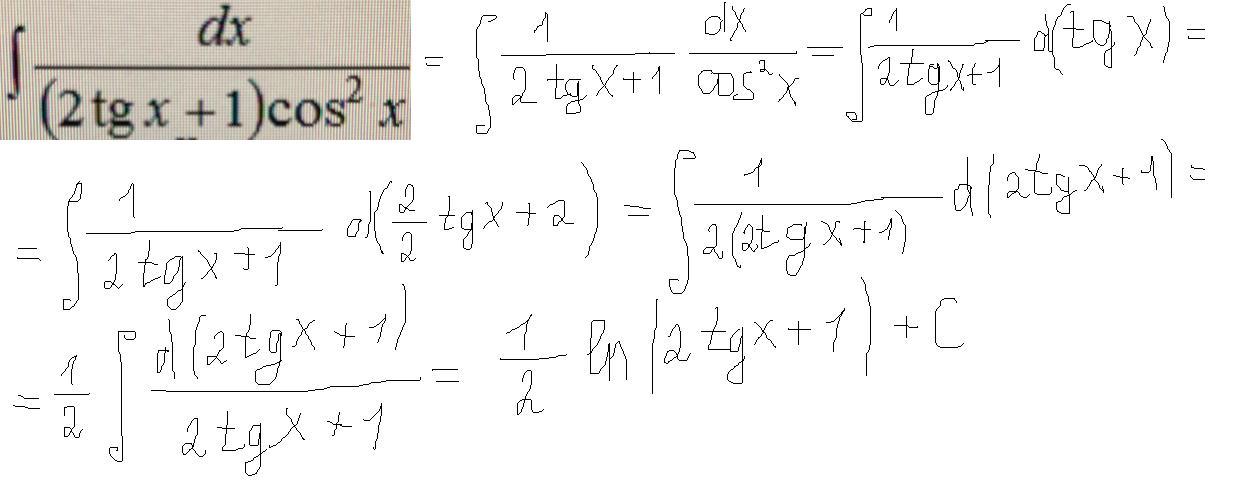 ∫ dx / ((2 tg x + 1)cos² x) = ∫ 1 / (2 tg x + 1) dx / cos² x = ∫ 1 / (2 tg x + 1) d(tg x) =
= ∫ 1 / (2 tg x + 1) d(2/2 tg x + 2) = ∫ 1 / (2(2 tg x + 1)) d(2 tg x + 1) =
= 1/2 ∫ d(2 tg x + 1) / (2 tg x + 1) = 1/2 ln |2 tg x + 1| + C